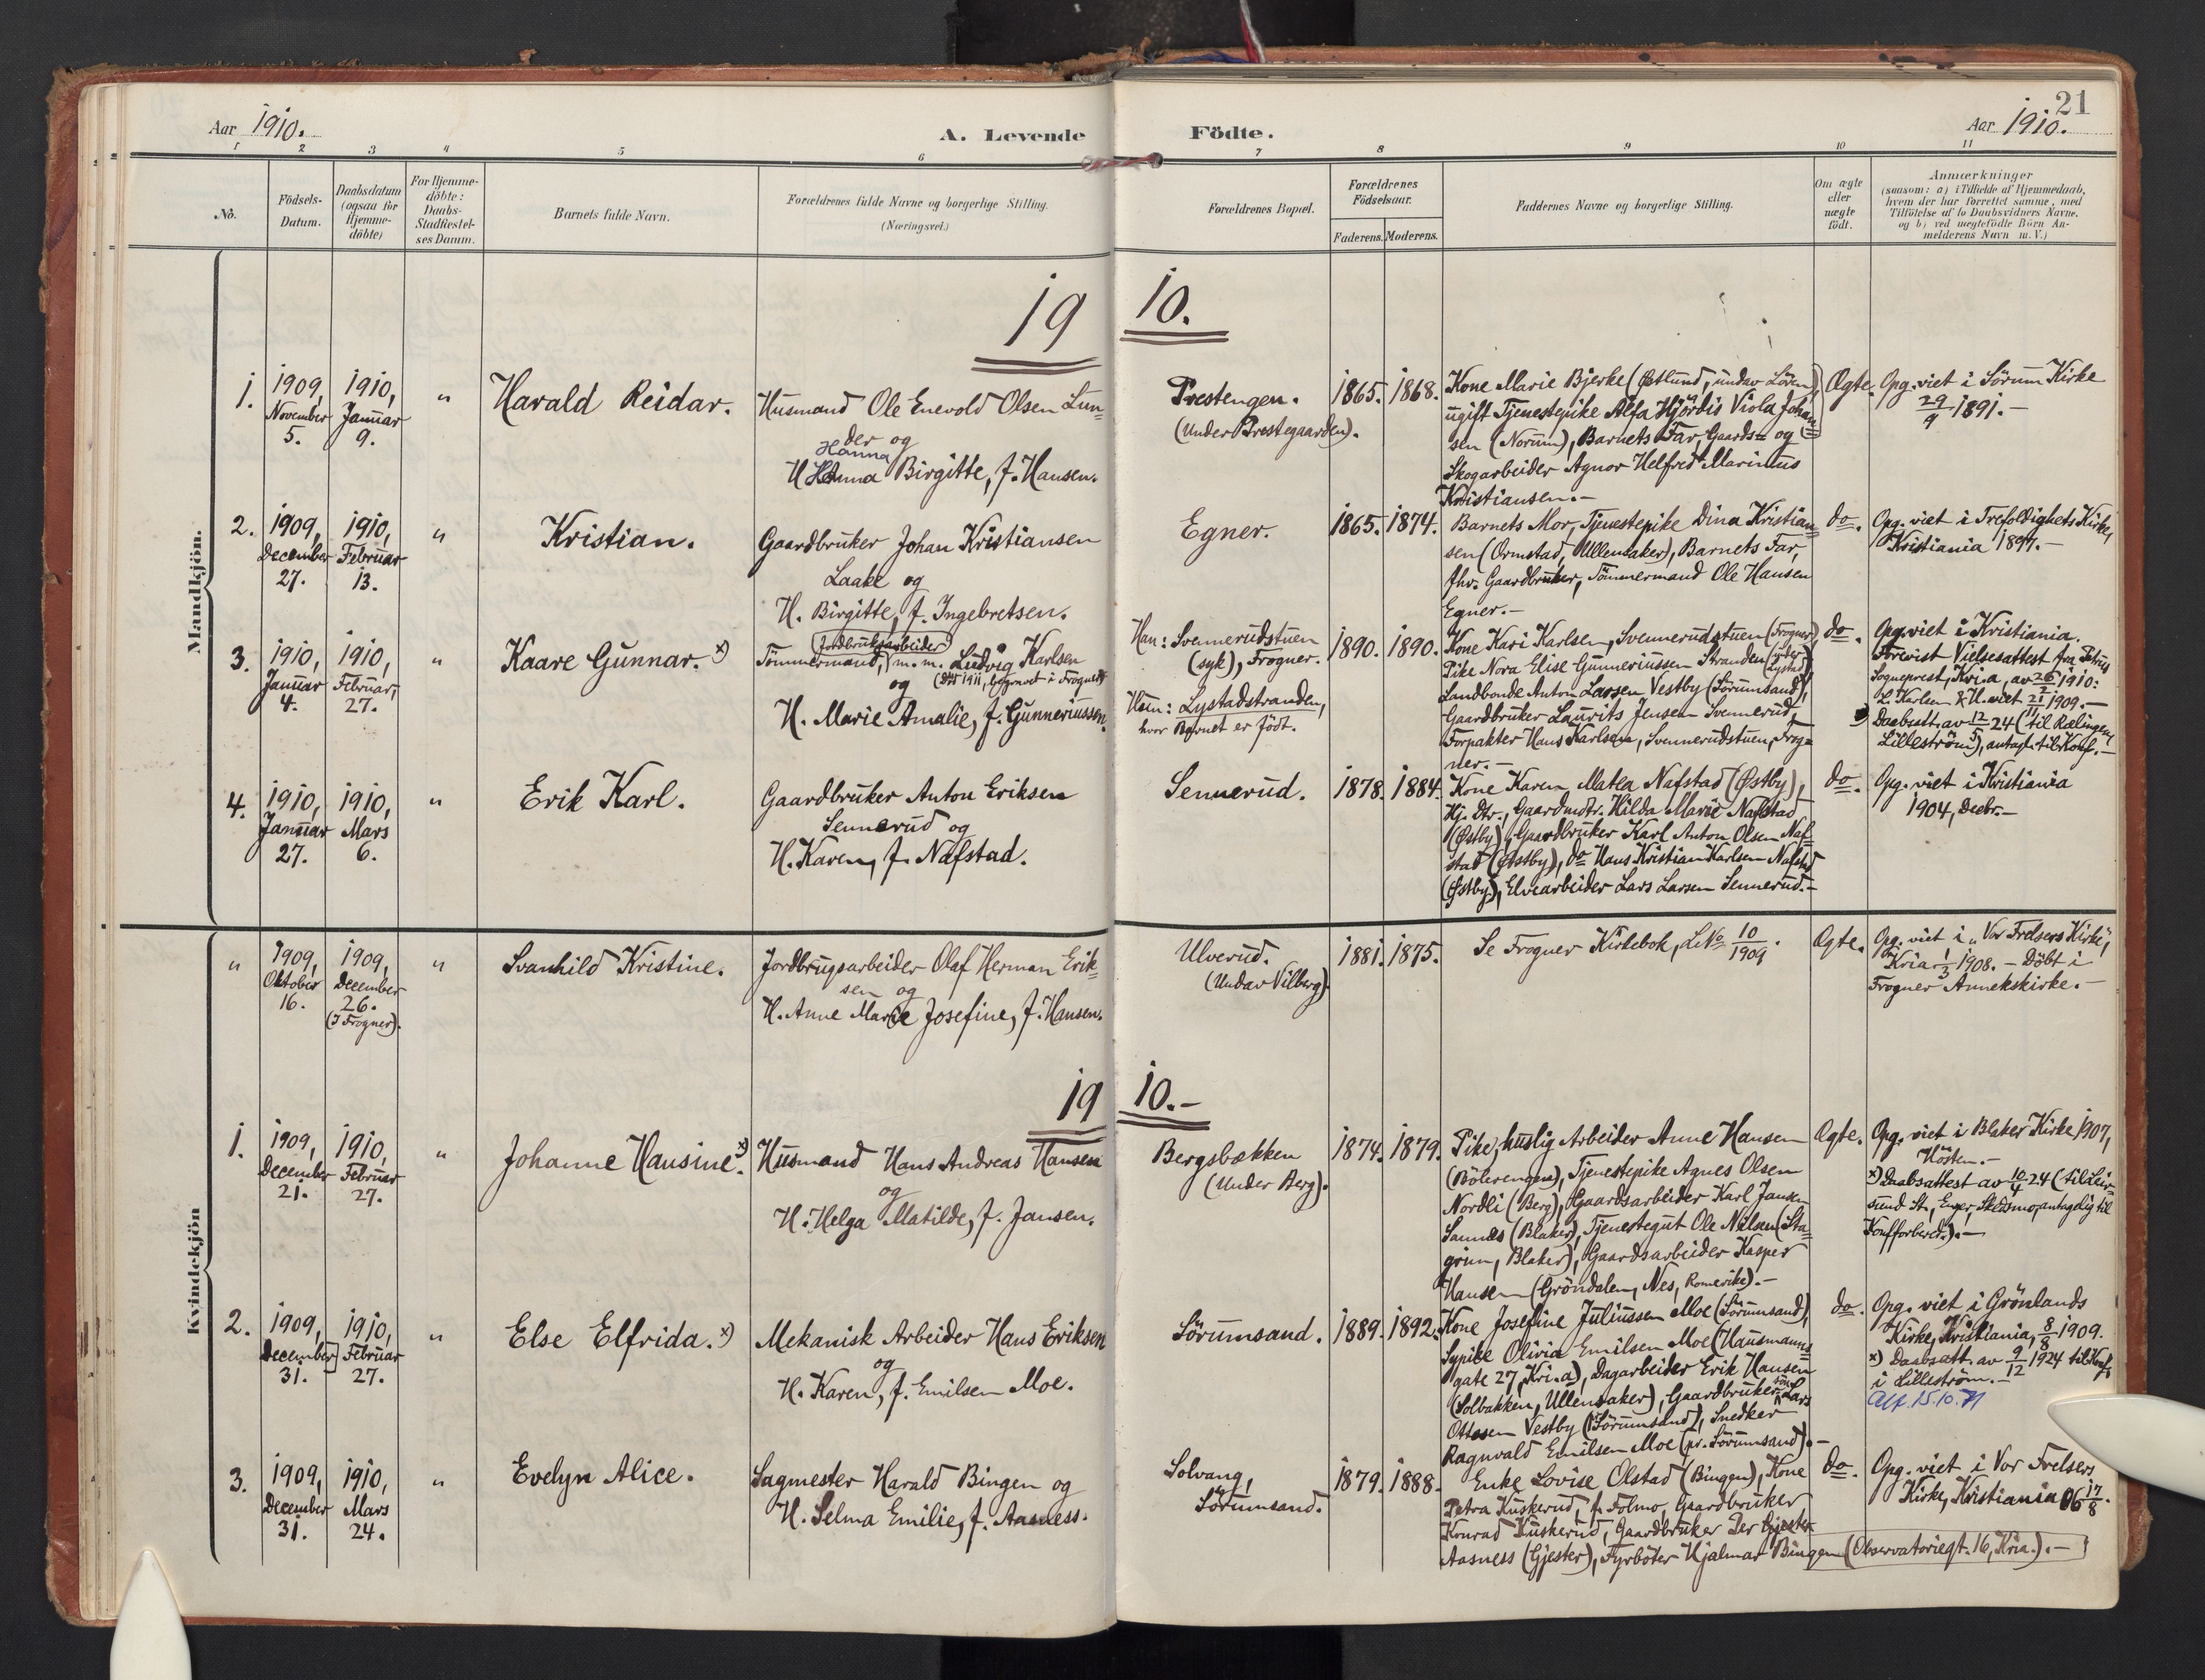 21
Aar 1910.
A. Levende Födte.
Aar 1910.
1 2 3 4 5 6 7 8 9 10 11
No.
Födsels-
Datum.
Daabsdatum
(ogsaa for
Hjemme-
döbte)
For Hjemme-
döbte:
Daabs-
Stadfæstel-
ses Datum.
Barnets fulde Navn.
Forældrenes fulde Navne og borgerlige Stilling.
(Næringsvei.)
Forældrenes Bopæl.
Forældrenes
Födselsaar.
Faderens. Moderens.
Faddernes Navne og borgerlige Stilling.
Om ægte
eller
uægte
födt.
Anmærkninger
(saasom: a) i Tilfælde af Hjemmedaab,
hvem der har forrettet samme, med
Tilföielse af to Daabsvidners Navne,
og b) ved uægtefödte Börn An-
melderens Navn m. V.)
Mandkjön.
1910.
1.
1909,
November
5.
1910,
Januar
9.
"
Harald Reidar.
Husmand Ole Enevold Olsen Lun-
der og
Hanna
H. Hanna Birgitte, f. Hansen.
Prestengen.
(Under Prestegaarden).
1865. 1868.
Kone Marie Bjerke (Østlund, undav Lören),
ugift Tjenestepike Alfa Hjördis Viola Johan-
sen (Norum), Barnets Far, Gaards- og
Skogarbeider Agnor Helfred Marinius
Kristiansen.-
Ægte.
Opg. viet i Sörum Kirke
29/9 1891.-
2.
1909,
December
27.
1910,
Februar
13.
"
Kristian.
Gaardbruker Johan Kristiansen
Laake og
H. Birgitte, f. Ingebretsen.
Egner.
1865. 1874.
Barnets Mor, Tjenestepike Dina Kristian-
sen (Ormstad, Ullensaker), Barnets Far,
fhv. Gaardbruker, Tömmermand Ole Hansen
Egner.-
do.
Opg. viet i Trefoldighets Kirke,
Kristiania 1897.-
3.
1910,
Januar
4.
1910,
Februar,
27.
"
Kaare Gunnar. x)
Jordbruksarbeider
Tömmermand, m. m. Ludvig Karlsen
og (död 1911, begravet i Frogner)
H. Marie Amalie, f. Gunneriussen.
Han: Svennerudstuen
(syk), Frogner.
Hun: Lystadstranden,
hvor Barnet er födt.
1890. 1890.
Kone Kari Karlsen, Svennerudstuen (Frogner),
Pike Nora Elise Gunneriussen Stranden (under Lystad),
Landbonde Anton Larsen Vestby (Sörumsand),
Gaardbruker Laurits Jensen Svennerud,
Forpakter Hans Karlsen, Svennerudstuen, Frog-
ner.-
do.
Opg. viet i Kristiania.
Forevist Vielsesattest fra Petrus
Sogneprest, Kri.a, av 26/2 1910:
L. Karlsen & H. viet 21/11 1909.-
x) Daabsatt. av 12/5 24 (til Rælingen,
Lilleström), antagl. til Konf.-
4.
1910,
Januar
27.
1910,
Mars
6.
"
Erik Karl.
Gaardbruker Anton Eriksen
Sennerud og
H. Karen, f. Nafstad.
Sennerud.
1878. 1884.
Kone Karen Matea Nafstad (Østby),
Hj. Dtr., Gaardmdtr. Hilda Marie Nafstad
(Østby), Gaardbruker Karl Anton Olsen Naf-
stad (Østby), do Hans Kristian Karlsen Nafstad
(Østby), Elvearbeider Lars Larsen Sennerud.-
do.
Opg. viet i Kristiania
1904, Decbr.-
Kvindekjön
"
1909,
Oktober
16.
1909,
December
26.
(I Frogner).
"
Svanhild Kristine.
Jordbrugsarbeider Olaf Herman Erik-
sen og
H. Anne Marie Josefine, f. Hansen.
Ulverud.
(Undav Vilberg).
1881. 1875.
Se Frogner Kirkebok, L. No 10/1909.
Ægte.
Opg. viet i "Vor Frelsers Kirke",
Kria 1/3 1908. - Döbt i
Frogner Annekskirke.-
1910.-
1.
1909,
December
21.
1910,
Februar
27.
"
Johanne Hansine. x)
Husmand Hans Andreas Hansen
og
H. Helga Matilde, f. Jansen.
Bergsbækken
(Under Berg).
1874. 1879.
Pike, huslig Arbeider Anne Hansen
(Bölerengen), Tjenestepike Agnes Olsen
Nordli (Berg), Gaardsarbeider Karl Jansen
Sannes (Blaker), Tjenestegut Ole Nilsen (Sta-
grim, Blaker), Gaardsarbeider Kasper
Hansen (Gröndalen, Nes, Romerike).-
Ægte.
Opg. viet i Blaker Kirke 1907,
Hösten.-
x) Daabsattest av 10/4 24 (til Leir-
sund St., Enger, Skedsmo, antagelig til
Konfforbered.).-
2.
1909,
December
31.
1910,
Februar
27.
"
Else Elfrida. x)
Mekanisk Arbeider Hans Eriksen
og
H. Karen, f. Emilsen Moe.
Sörumsand.
1889. 1892.
Kone Josefine Juliussen Moe (Sörumsand),
Sypike Olivia Emilsen Moe (Hausmanns-
gate 27, Kri.a), Dagarbeider Erik Hansen
(Solbakken, Ullensaker), Gaardbrukersön Lars
Ottesen Vestby (Sörumsand), Snedker
Ragnvald Emilsen Moe (pr. Sörumsand).-
do.
Opg. viet i Grönlands
Kirke, Kristiania, 8/8 1909.
x) Daabsatt. av 9/12 1924 til Konf.
i Lilleström.-
Att. 15.10.71
3.
1909,
December
31.
1910,
Mars
24.
"
Evelyn Alice.
Sagmester Harald Bingen og
H. Selma Emilie, f. Aasness.
Solvang,
Sörumsand.
1879. 1888.
Enke Lovise Olstad (Bingen), Kone
Petra Kuskerud, f. Folmo, Gaardbruker
Konrad Kuskerud, Gaardbruker Per Gjester
Aasness (Gjester), Fyrböter Hjalmar Bingen (Observatoriegt. 16, Kria.).-
do.
Opg. viet i Vor Frelsers
Kirke, Kristiania 06 17/8.